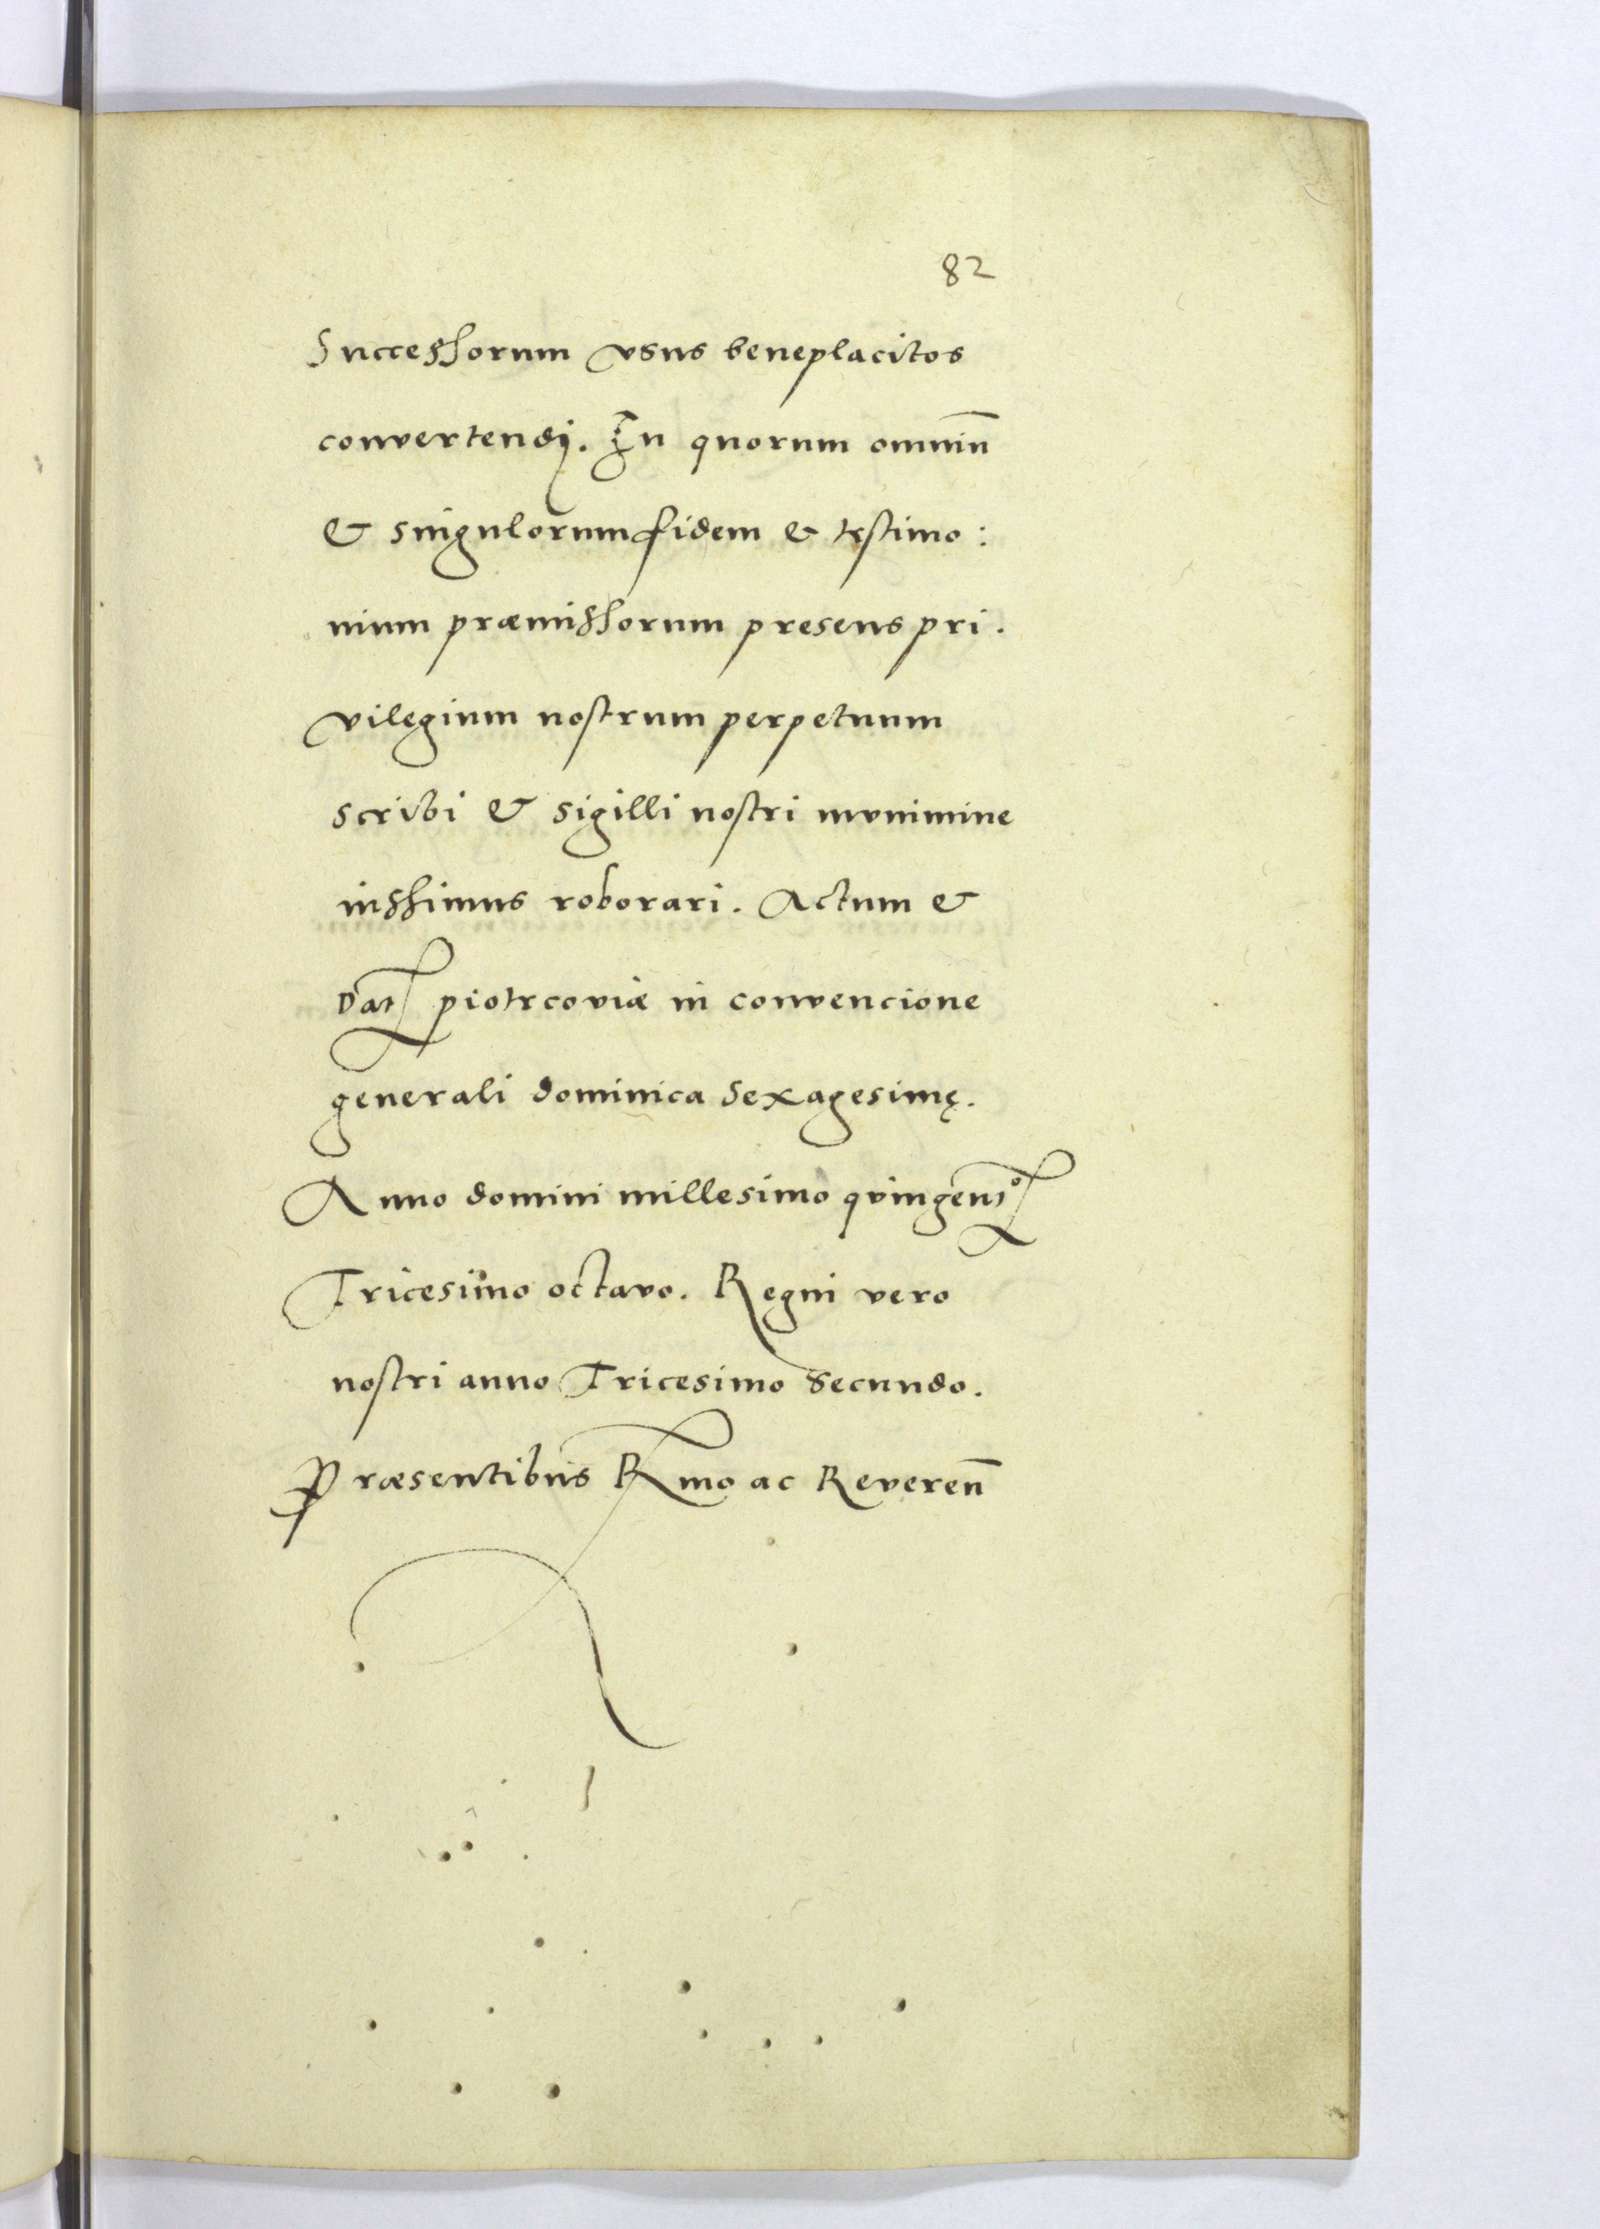 82
Successorum vsus beneplacitos
convertendj. In quorum omniū
& singulorum fidem & testimo:
nium præmissorum presens pri.
vilegium nostrum perpetuum
scribi & sigilli nostri mvnimine
iussimus roborari. Actum &
Dat piotrcoviæ in convencione
generali dominica Sexagesimę.
Anno domini millesimo qvingentº
Tricesimo octavo. Regni vero
nostri anno Tricesimo Secundo.
Præsentibus Rmo ac Reveren̄